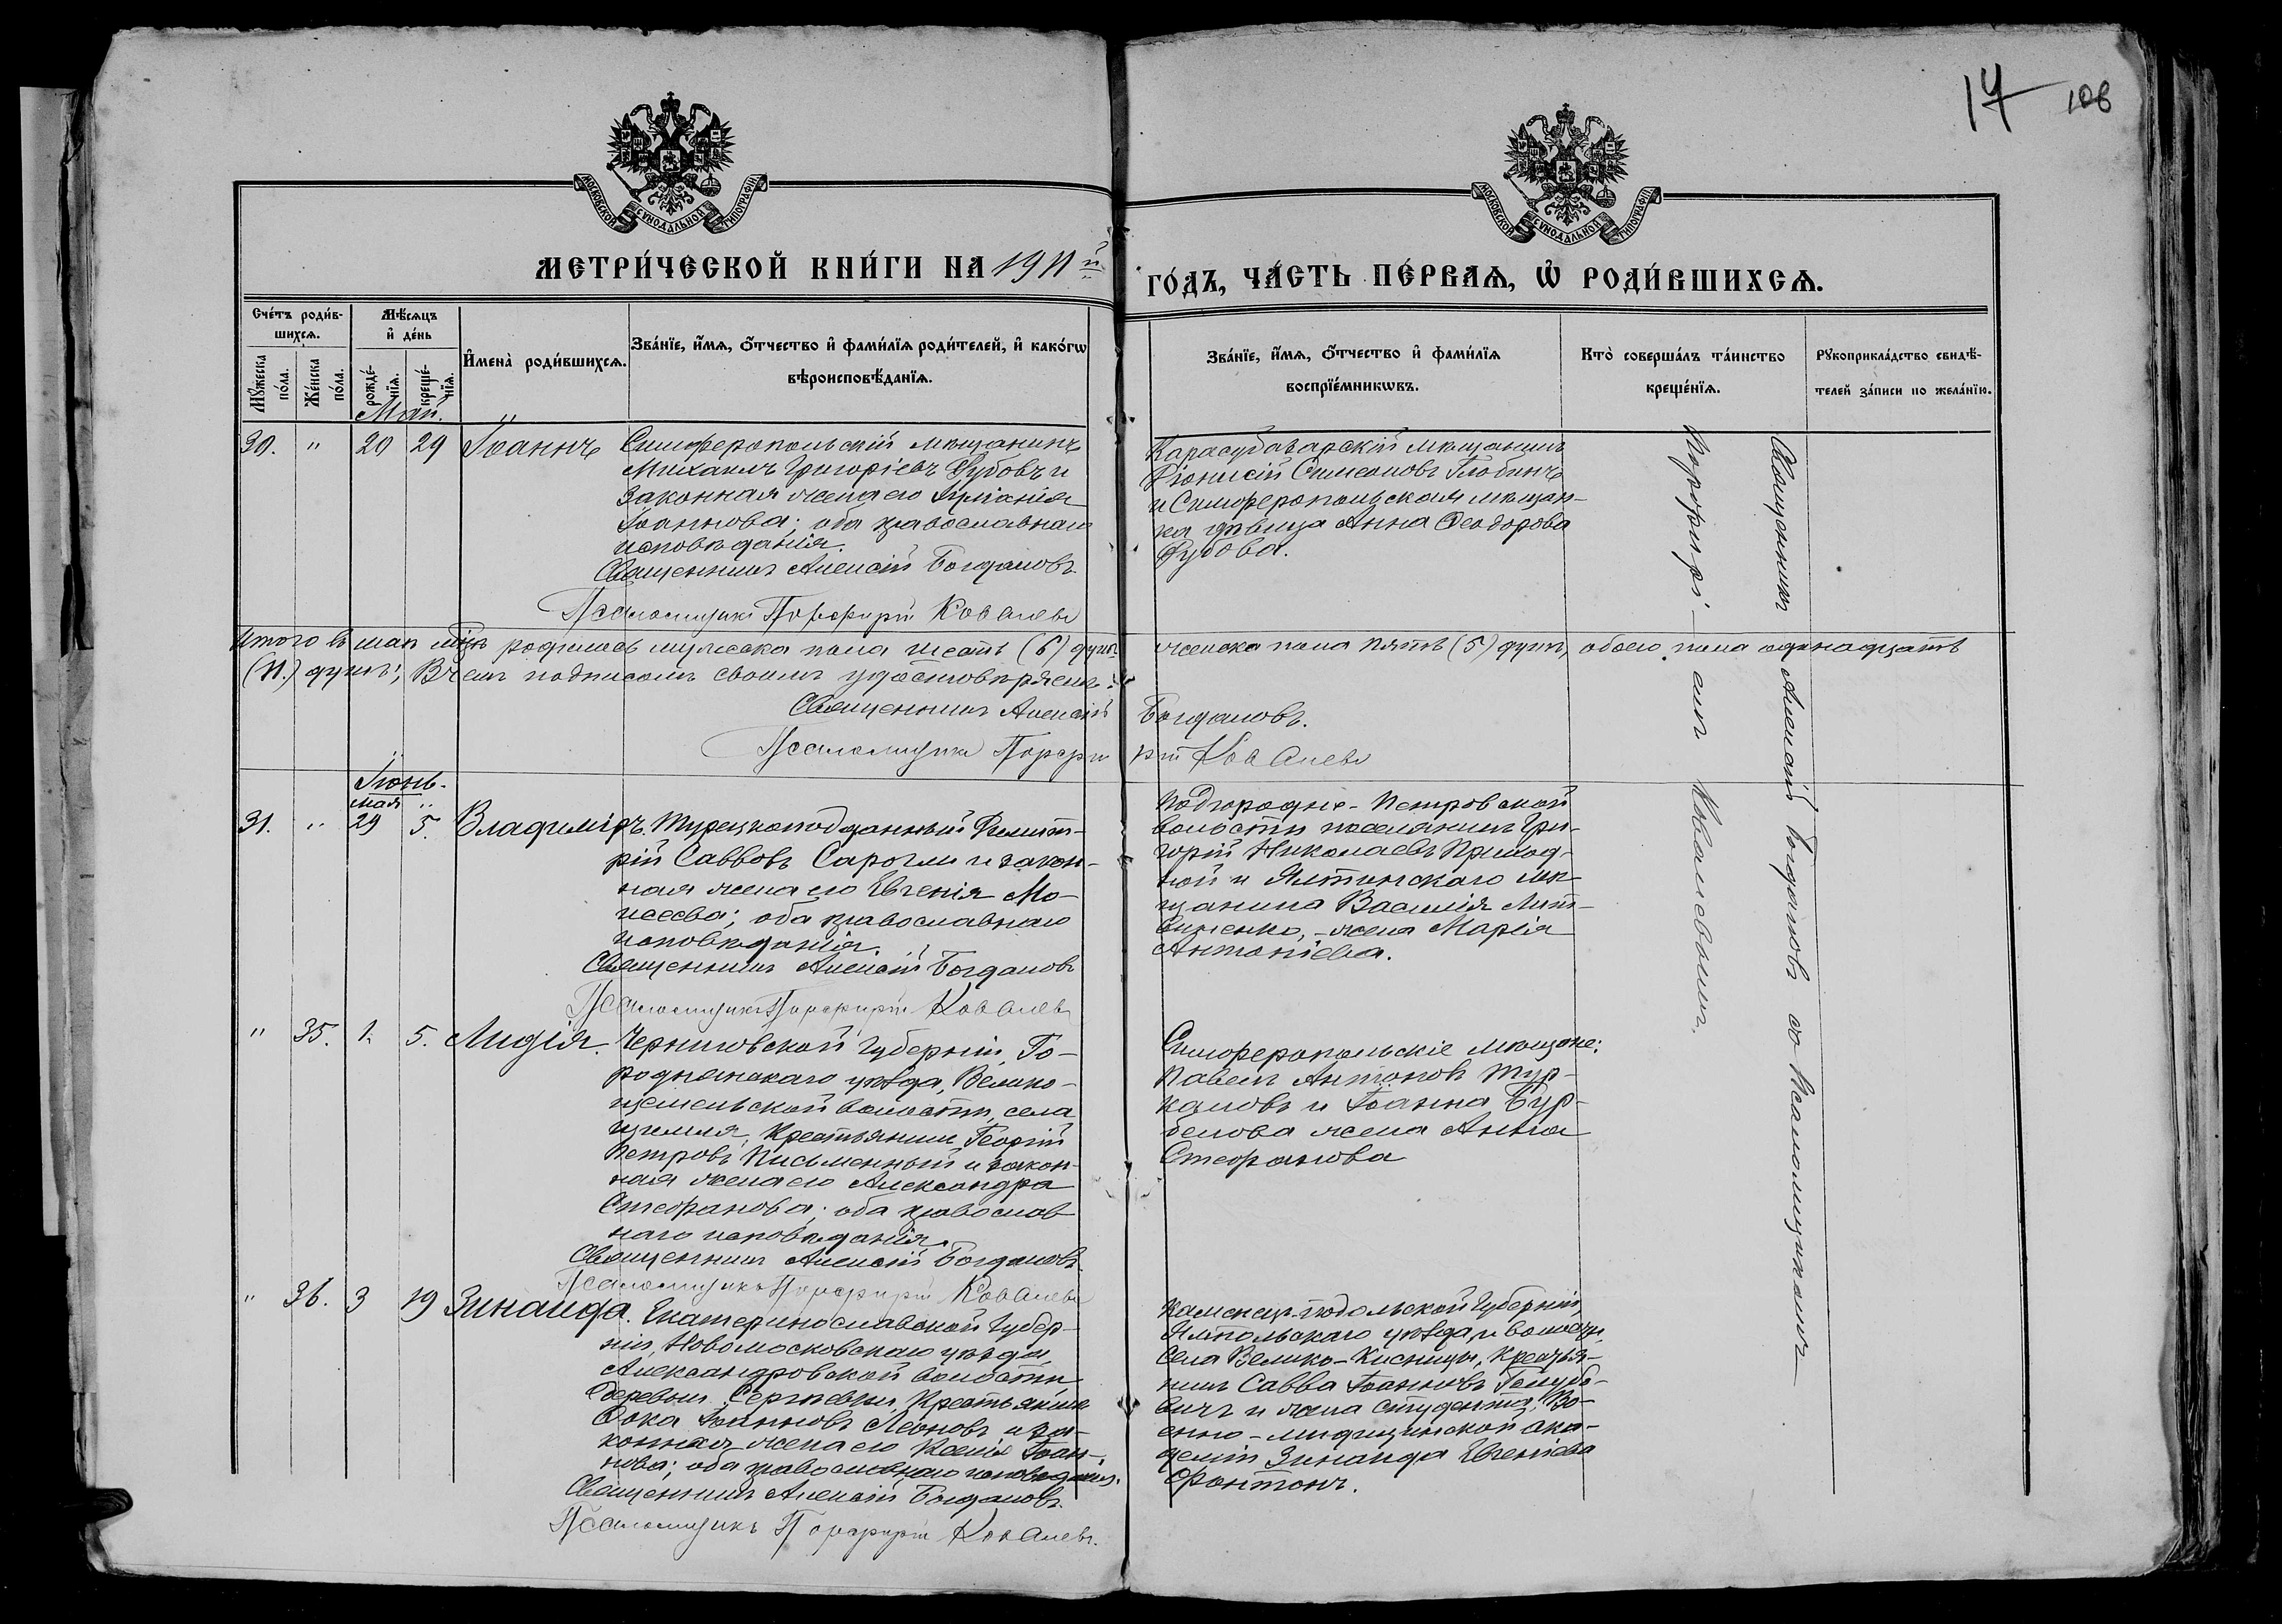 14 106
МОСКОВСКОЙ СѴНОДАЛЬНОЙ ТИПОГРАФІИ
МОСКОВСКОЙ СѴНОДАЛЬНОЙ ТИПОГРАФІИ
МЕТРИ́ЧЕСКОЙ КНИ́ГИ НА 1911й
ГО́ДЪ, ЧА́СТЬ ПЕ́РВАѦ, Ѿ РОДИ́ВШИХСѦ.
Сче́тъ роди́в-
шихсѧ.
Мꙋ́жеска
по́ла.
Же́нска
по́ла.
Мѣ́сѧцъ
и҆ де́нь
рожде́-
нїѧ.
креще́-
нїѧ.
И҆мена̀ роди́вшихсѧ.
Зва́нїе, и҆́мѧ, ѻ҆́тчество и҆ фами́лїѧ роди́телей, и҆ како́гѡ
вѣроисповѣ́данїѧ.
Зва́нїе, и҆́мѧ, ѻ҆́тчество и҆ фами́лїѧ
воспрїе́мникѡвъ.
Кто̀ соверша́лъ та́инство
креще́нїѧ.
Рꙋкоприкла́дство свидѣ́-
телей за́писи по жела́нїю.
Май.
30. " 20 29 Іоаннъ
Симферопольскій мѣщанинъ
Михаилъ Григоріевъ Зубовъ и
законная жена его
Іоаннова; оба православнаго
исповѣданія.
Священникъ Алексій Богдановъ
Псаломщикъ Порфирій Ковалевъ
Карасубазарскій мѣщанинъ
Діонисій Симеоновъ Глобинъ
и Симферопольская мѣщан-
ка дѣвица Анна Ѳеодорова
Зубова.
Итого въ маѣ мѣс. родилось мужеска пола шесть (6) душъ женска пола пять (5) душъ, обоего пола одинадцать
(11.) душъ; В чемъ подписомъ своимъ удостовѣряемъ:
Священникъ Алексій Богдановъ.
Псаломщикъ Порфирій Ковалевъ
Іюнь.
мая "
31. " 29 5. Владиміръ.
Турецкоподданный Димит-
рій Саввовъ Сарогли и закон-
ная жена его Евгенія Мо-
исеева; оба православнаго
исповѣданія.
Священникъ Алексій Богдановъ
Псаломщикъ Порфирій Ковалевъ
Подгородне-Петровской
волости поселянинъ Гри-
горій Николаевъ Приход-
ной и Ялтинскаго мѣ-
щанина Василія Лит-
виненко, - жена Марія
Антоніева.
" 35. 1. 5. Лидія.
Черниговской губерніи, Го-
роднянскаго уѣзда, Велико-
щимельской волости, села
Щимля, Крестьянинъ Георгій
Петровъ Письменный и закон-
ная жена его Александра
Стефанова; оба православ
наго исповѣданія.
Священникъ Алексій Богдановъ.
Псаломщикъ Порфирій Ковалевъ
Симферопольскіе мѣщане:
Павелъ Антоновъ Тур-
кановъ и Іоанна Бур-
белова жена Анна
Стефанова
" 36. 3 19 Зинаида.
Екатеринославской Губер-
ніи, Новомосковскаго уѣзда
Александровской волости
деревни Сергѣевки, Крестьянинъ
Ѳока Іоанновъ Леоновъ и за-
конная жена его Ксенія Іоан-
нова; оба православнаго исповѣданія.
Священникъ Алексій Богдановъ.
Псаломщикъ Порфирій Ковалевъ.
Каменецъ-Подольской Губерніи,
Ямпольскаго уѣзда, и волости
села Велико-Кисницы, Крестья-
нинъ Савва Іоанновъ Голубо-
вичъ и жена студента Во-
енно-медицинской ака-
деміи Зинаида Евгеніева
Фонтонъ.
Священникъ Алексій Богдановъ со Псаломщикомъ
Порфиріемъ Ковалевымъ.